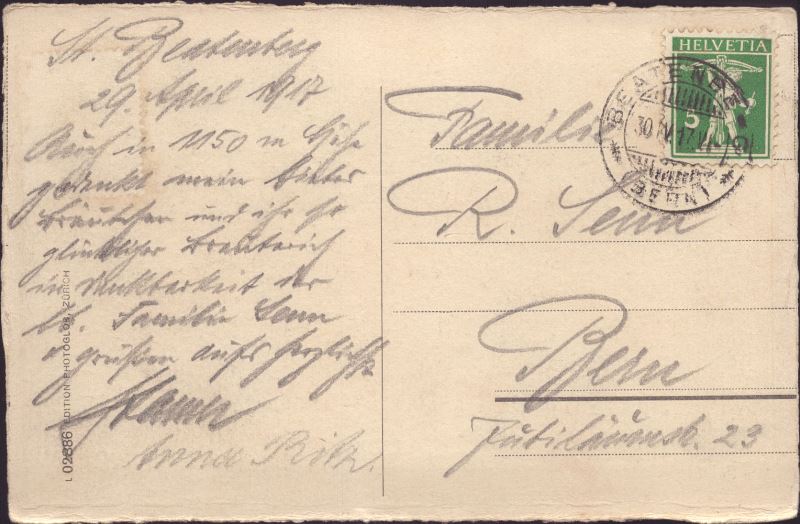 St. Beatenberg
29. April 1917
Auch in 1150 m Höhe
gedenkt mein liebes
Bräutchen und ihr so
glücklicher Bräuterich
in Dankbarkeit der
lb. Familie Senn
u grüßen aufs herzlichste
Anna Ritz.
L 02886 EDITION PHOTOGLOB, ZÜRICH
HELVETIA
5
BEATENB
30 IV 17
(BERN)
Familie
R. Senn
Bern
Jubiläumstr. 23